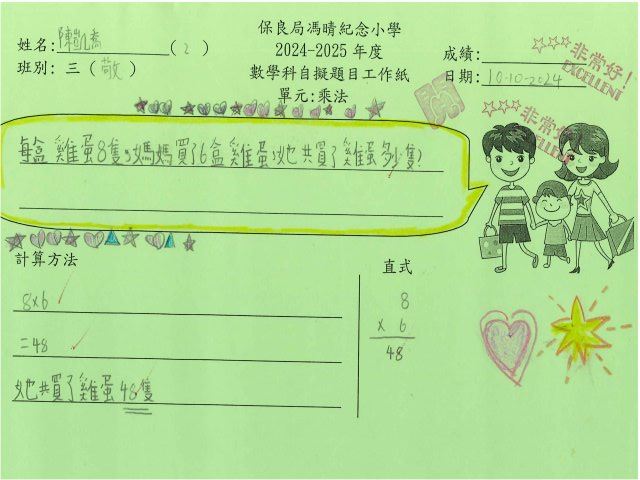 保良局馮晴紀念小學
姓名: 陳凱喬 ( 2 )
2024-2025 年度
成績:
非常好!
EXCELLENT
班別: 三 ( 敬 )
數學科自擬題目工作紙
日期: 10-10-2024
單元:乘法
非常
每盒雞蛋8隻,媽媽買了6盒雞蛋,她共買了雞蛋多少隻?
計算方法
直式
8x6
8
=48
x 6
48
她共買了雞蛋48隻